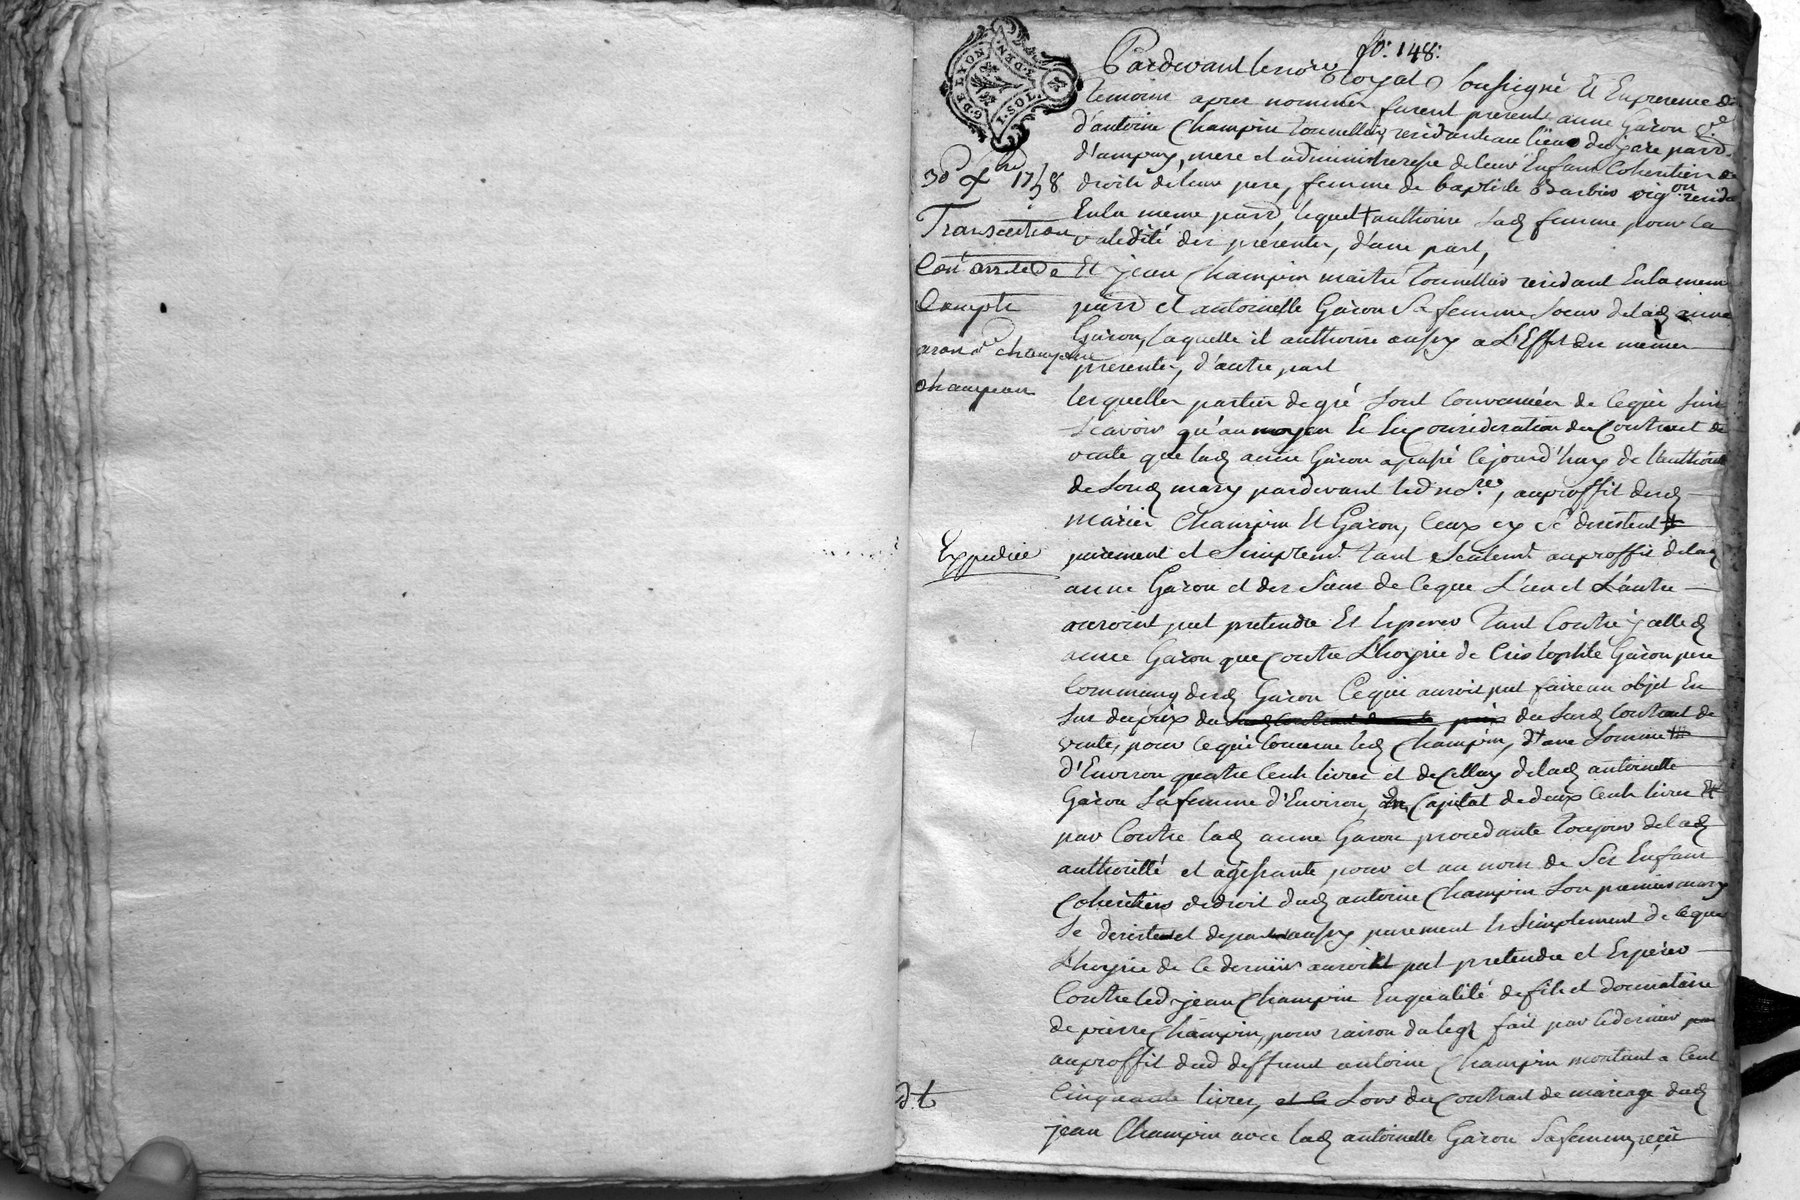 fo: 148:
G. DE LYON
1. SOL. 4. DEN.
Pardevant le nore Royal Soussigné Et En presence de
temoins apres nommés furent presents anne Garon
d'antoine Champin tonnellier, residante au lieu du pare parr.
d'ampuy, mere et administreresse de leurs Enfans Coheritiers de
droit de leur pere, femme de baptiste Barbier vigon reside
En la meme parr, lequel authorise lad femme pour la
validité des presentes, d'une part,
Et jean Champin maitre tonnellier residant En la meme
parr et antoinelle Garon Sa femme Soeur de lad anne
Garon, laquelle il authorise aussy a L'Effet des memes
presentes, d'autre part
lesquelles parties de gré sont Convenües de Ce qui suit
Scavoir qu'au moyen Et En Consideration du Contract de
vente que lad anne Garon a passé Cejourd'huy de l'authorité
de Sond mary pardevant led nore, au proffit desd
mariés Champin Et Garon, Ceux cy se desistent
purement et Simplemt tant Seulemt au proffit de lad
anne Garon et des Siens de Ce que L'un et L'autre
auroient put pretendre Et Esperer tant Contre jcelle
anne Garon que Contre L'hoyrie de Cristophle Garon pere
Commung desd Garon Ce qui auroit put faire un objet En
Sus du prix du Susd Contract de
vente, pour Ce qui Concerne led Champin, d'une Somme
d'Environ quatre Cents livres et de Celluy de lad antoinette
Garon Sa femme d'Environ, Capital de deux Cents livres Et
par Contre lad anne Garon procedante toujours de lad
authorité et agissante pour et au nom de Ses Enfans
Coheritiers de droit dud antoine Champin Son premier mary
Se desiste et depart aussy purement Et Simplement de Ce que
L'hoyrie de Ce dernier auroit put pretendre et Esperer
Contre led jean Champin En qualité de fils et donnataire
de pierre Champin, pour raison du legs fait par Ce dernier
au proffit dud deffunt antoine Champin montant a Cent
Cinquante livres, Lors du Contract de mariage dud
jean Champin avec lad antoinelle Garon Sa femme, reçü
30 Xbre 1758
Transaction
Cont arreté de
Compte
garon de champin
champin
Expediée
d.t